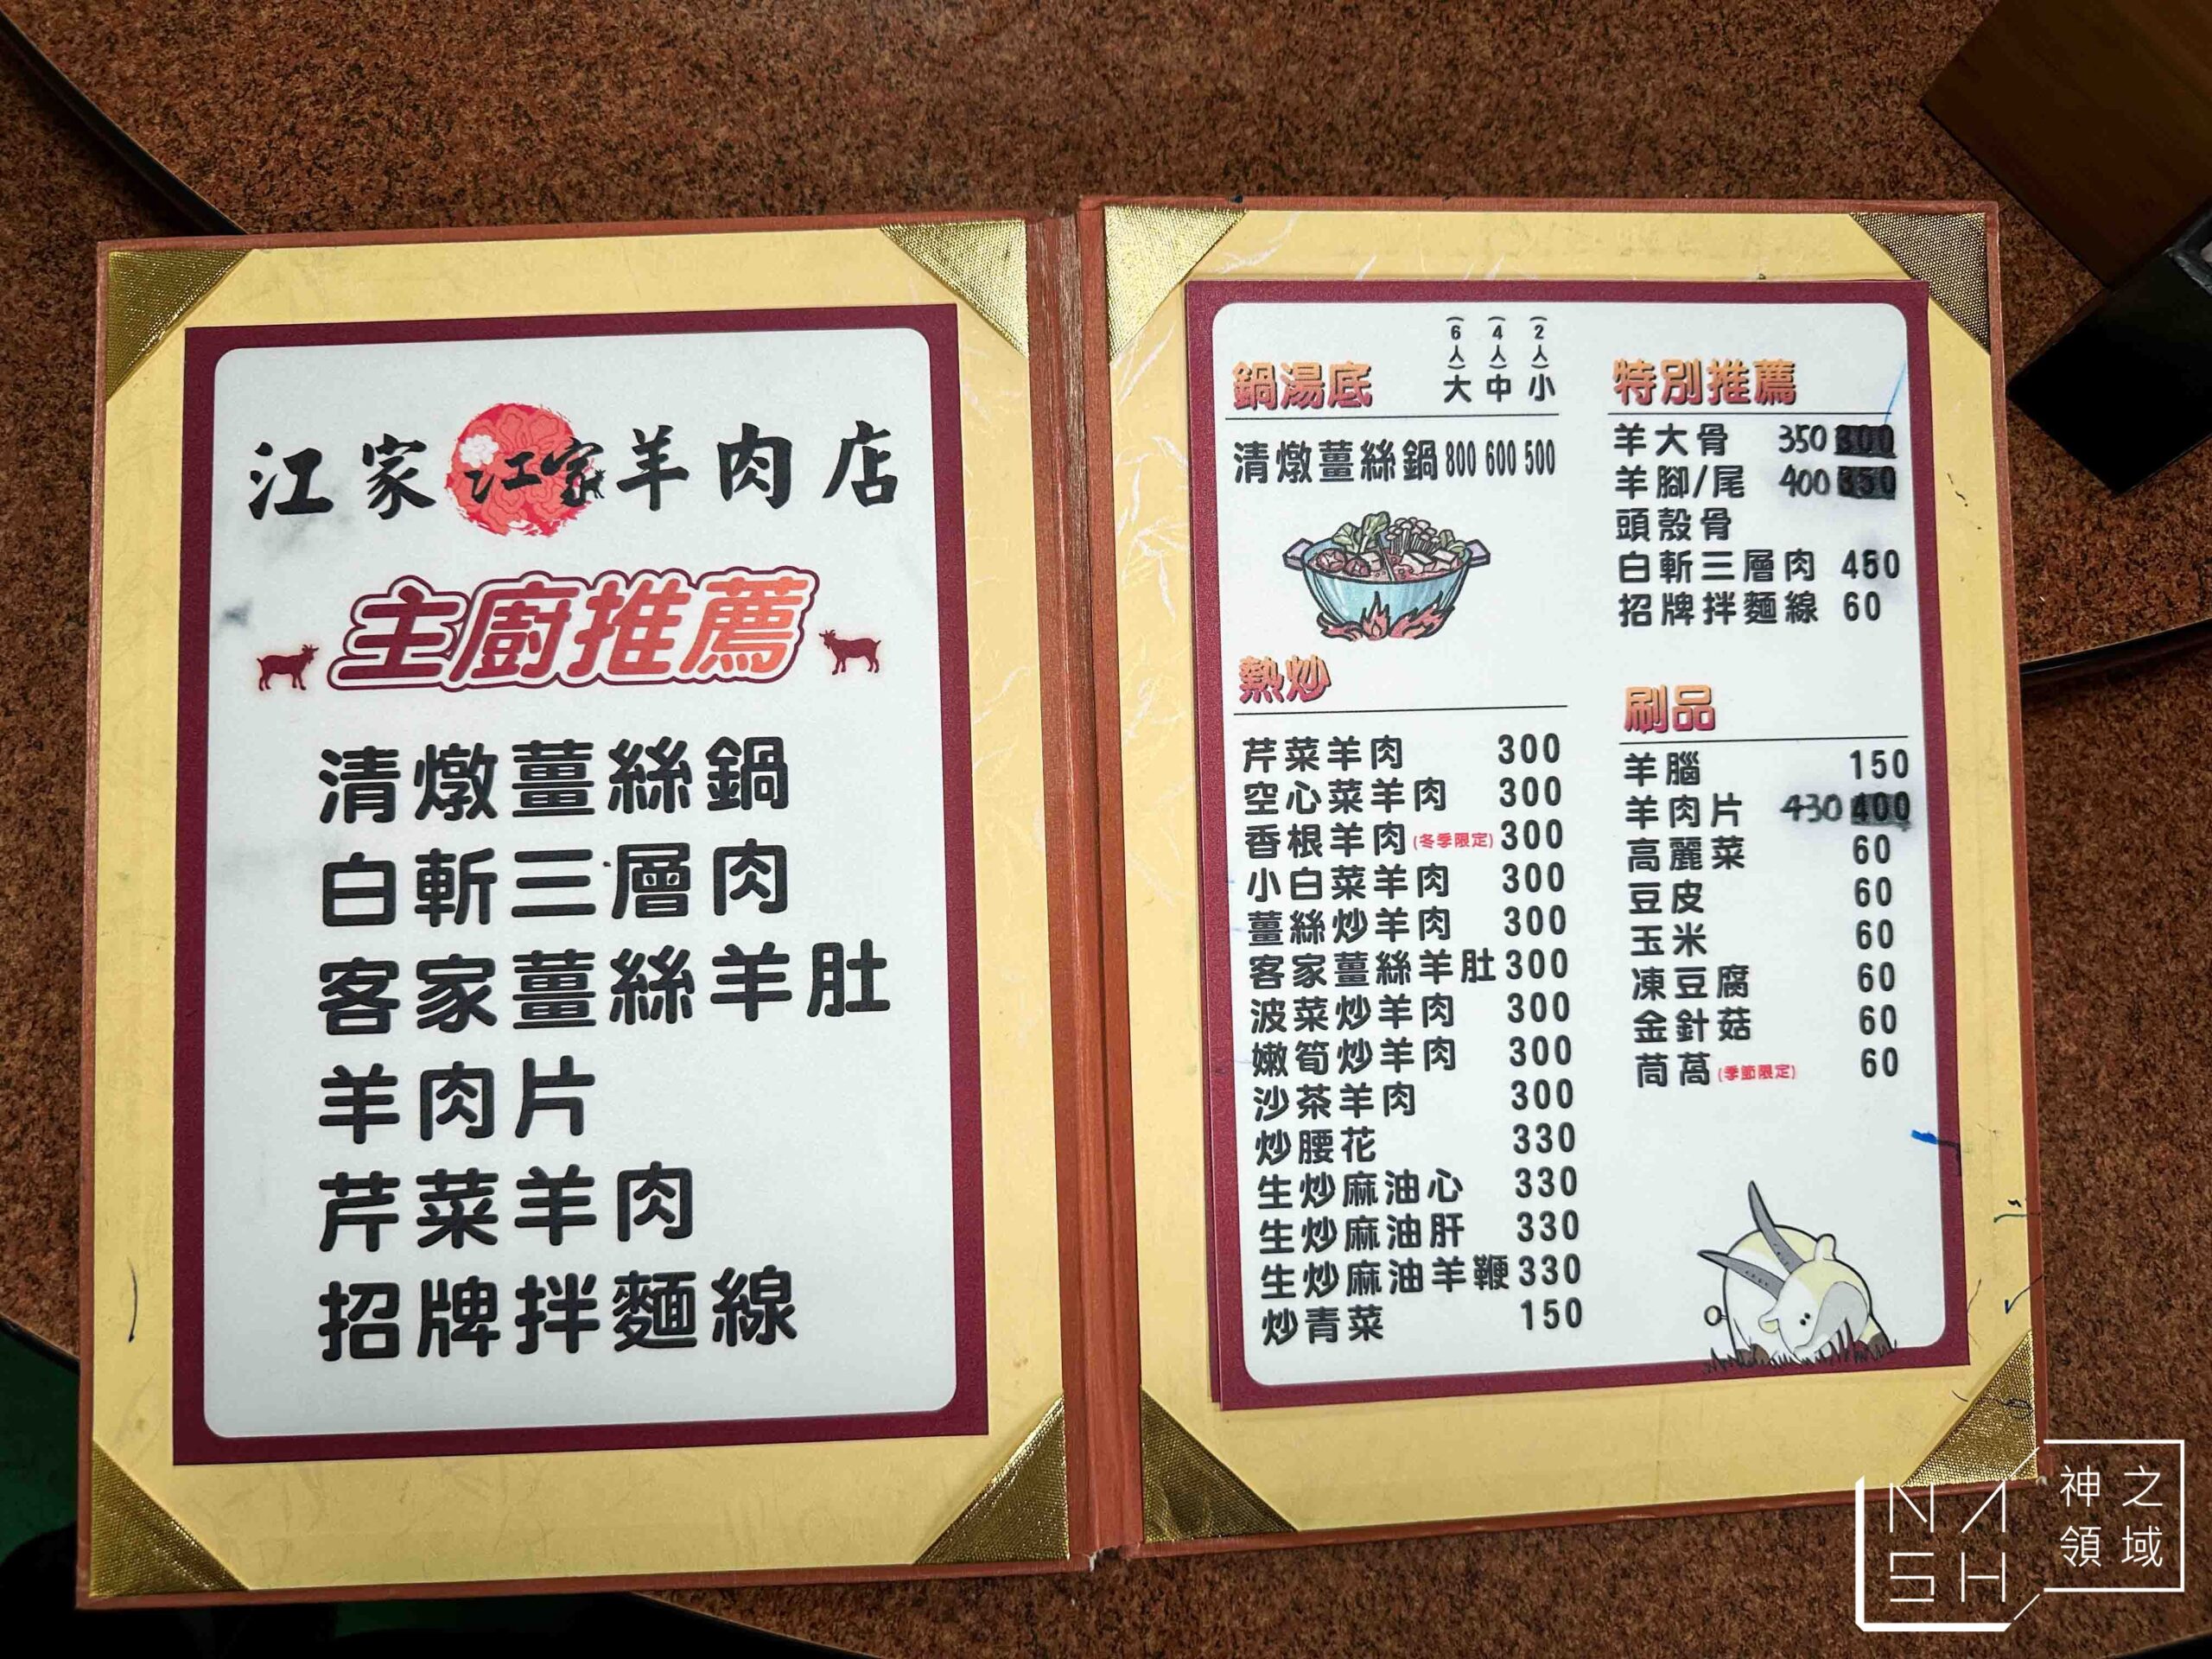 江家江家羊肉店
主廚推薦
清燉薑絲鍋
白斬三層肉
客家薑絲羊肚
羊肉片
芹菜羊肉
招牌拌麵線
鍋湯底 大(6人) 中(4人) 小(2人)
清燉薑絲鍋 800 600 500
熱炒
芹菜羊肉 300
空心菜羊肉 300
香根羊肉(冬季限定) 300
小白菜羊肉 300
薑絲炒羊肉 300
客家薑絲羊肚 300
波菜炒羊肉 300
嫩筍炒羊肉 300
沙茶羊肉 300
炒腰花 330
生炒麻油心 330
生炒麻油肝 330
生炒麻油羊鞭 330
炒青菜 150
特別推薦
羊大骨 350 300
羊腳/尾 400 350
頭殼骨
白斬三層肉 450
招牌拌麵線 60
刷品
羊腦 150
羊肉片 430 400
高麗菜 60
豆皮 60
玉米 60
凍豆腐 60
金針菇 60
茼萵(季節限定) 60
NASH
神之領域